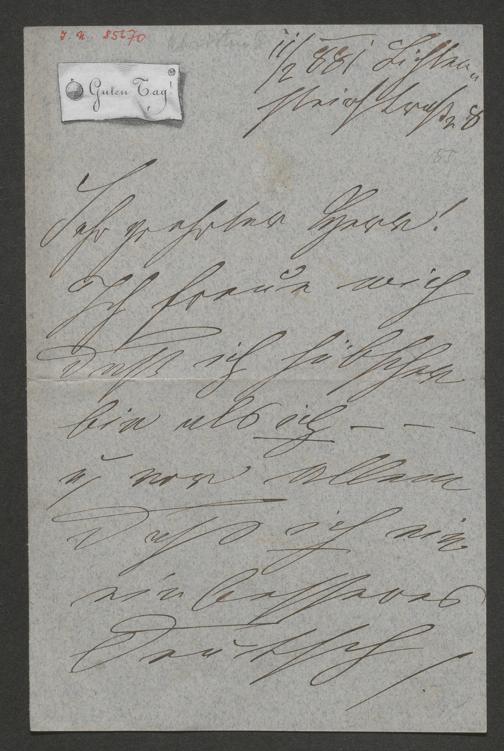 J. N. 85670
Guten Tag!
11/2 881 Lichten
steinstraße 8
Sehr geehrter Herr!
Ich freue mich
daß ich hübscher
bin als ich – – –
u vor allem
daß ich ein
ein besseres
Deutsch